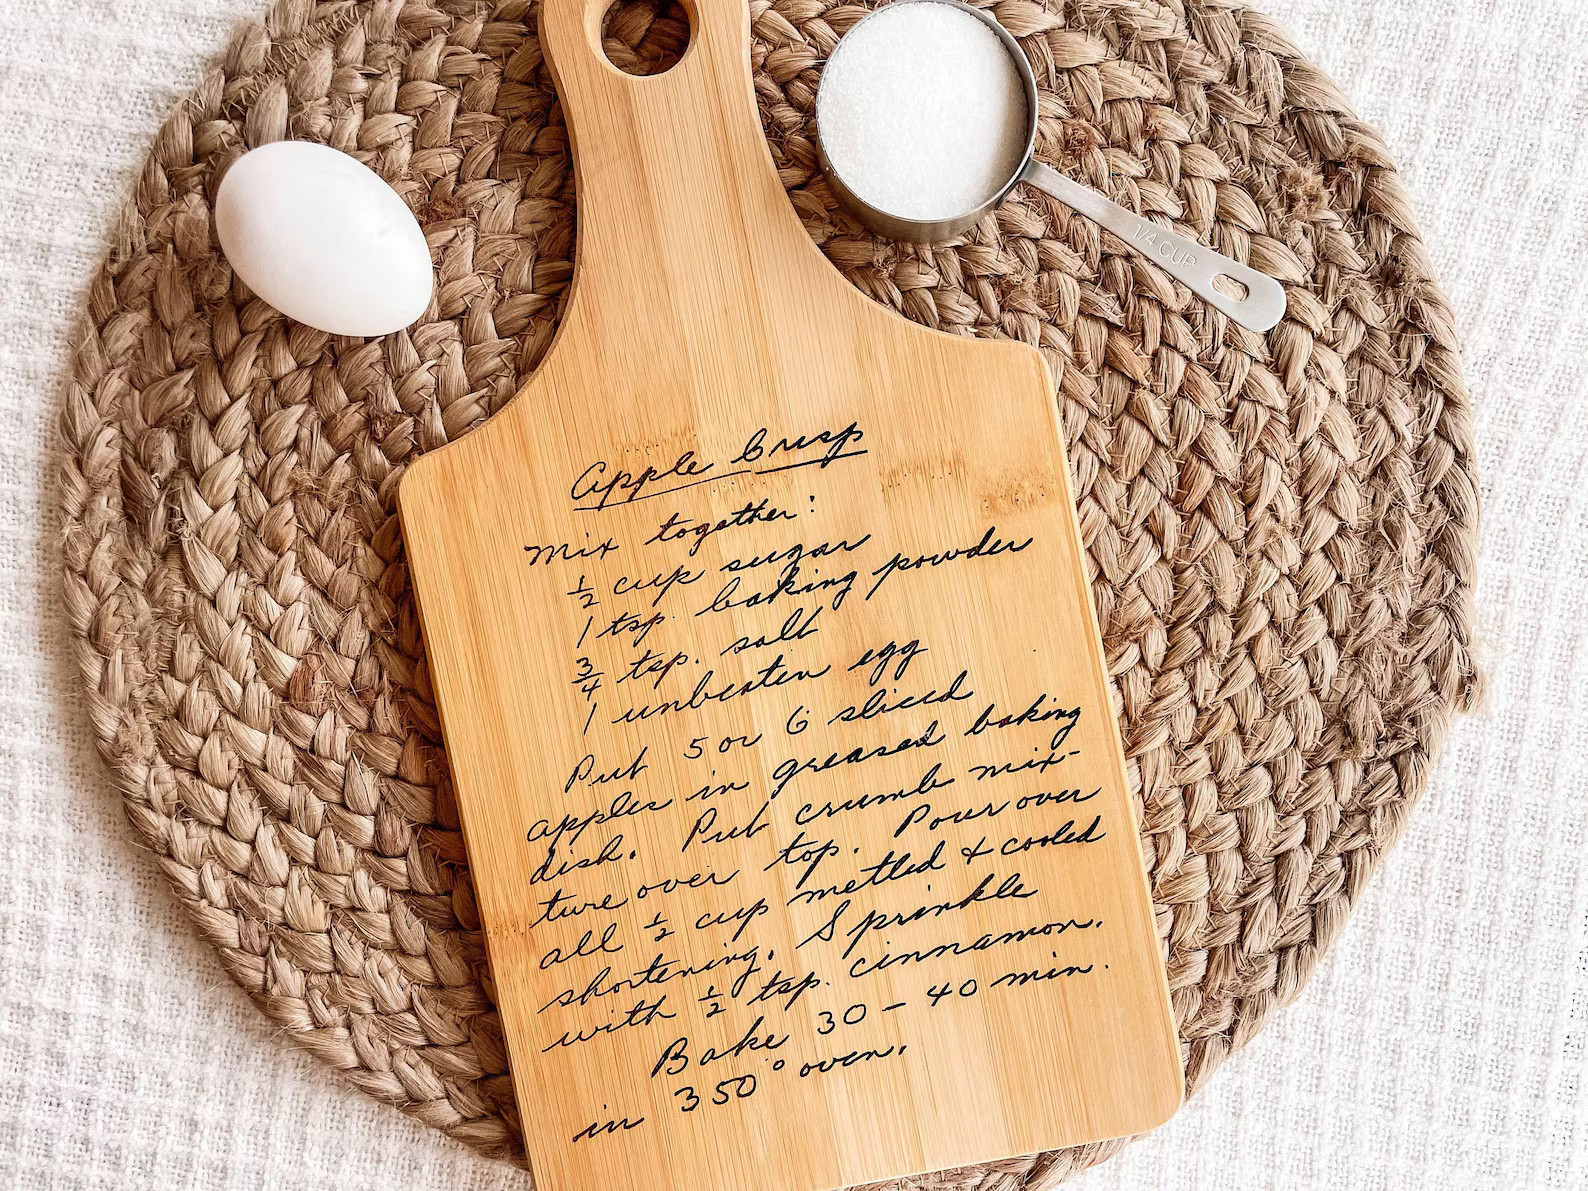 Apple Crisp
Mix together:
1/2 cup sugar
1 tsp. baking powder
3/4 tsp. salt
1 unbeaten egg
Put 5 or 6 sliced
apples in greased baking
dish. Put crumb mix-
ture over top. Pour over
all 1/2 cup metled & cooled
shortening. Sprinkle
with 1/2 tsp. cinnamon.
Bake 30 - 40 min.
in 350° oven.
1/4 CUP